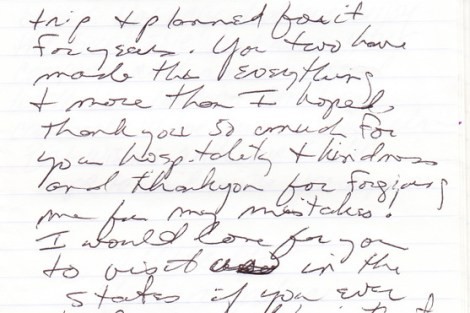 trip & planned for it
for years. You two have
made this everything
& more than I hoped,
thank you so much for
your hospitality & kindness
and thankyou for forgiving
me for my mistakes.
I would love for you
to visit in the
states if you ever